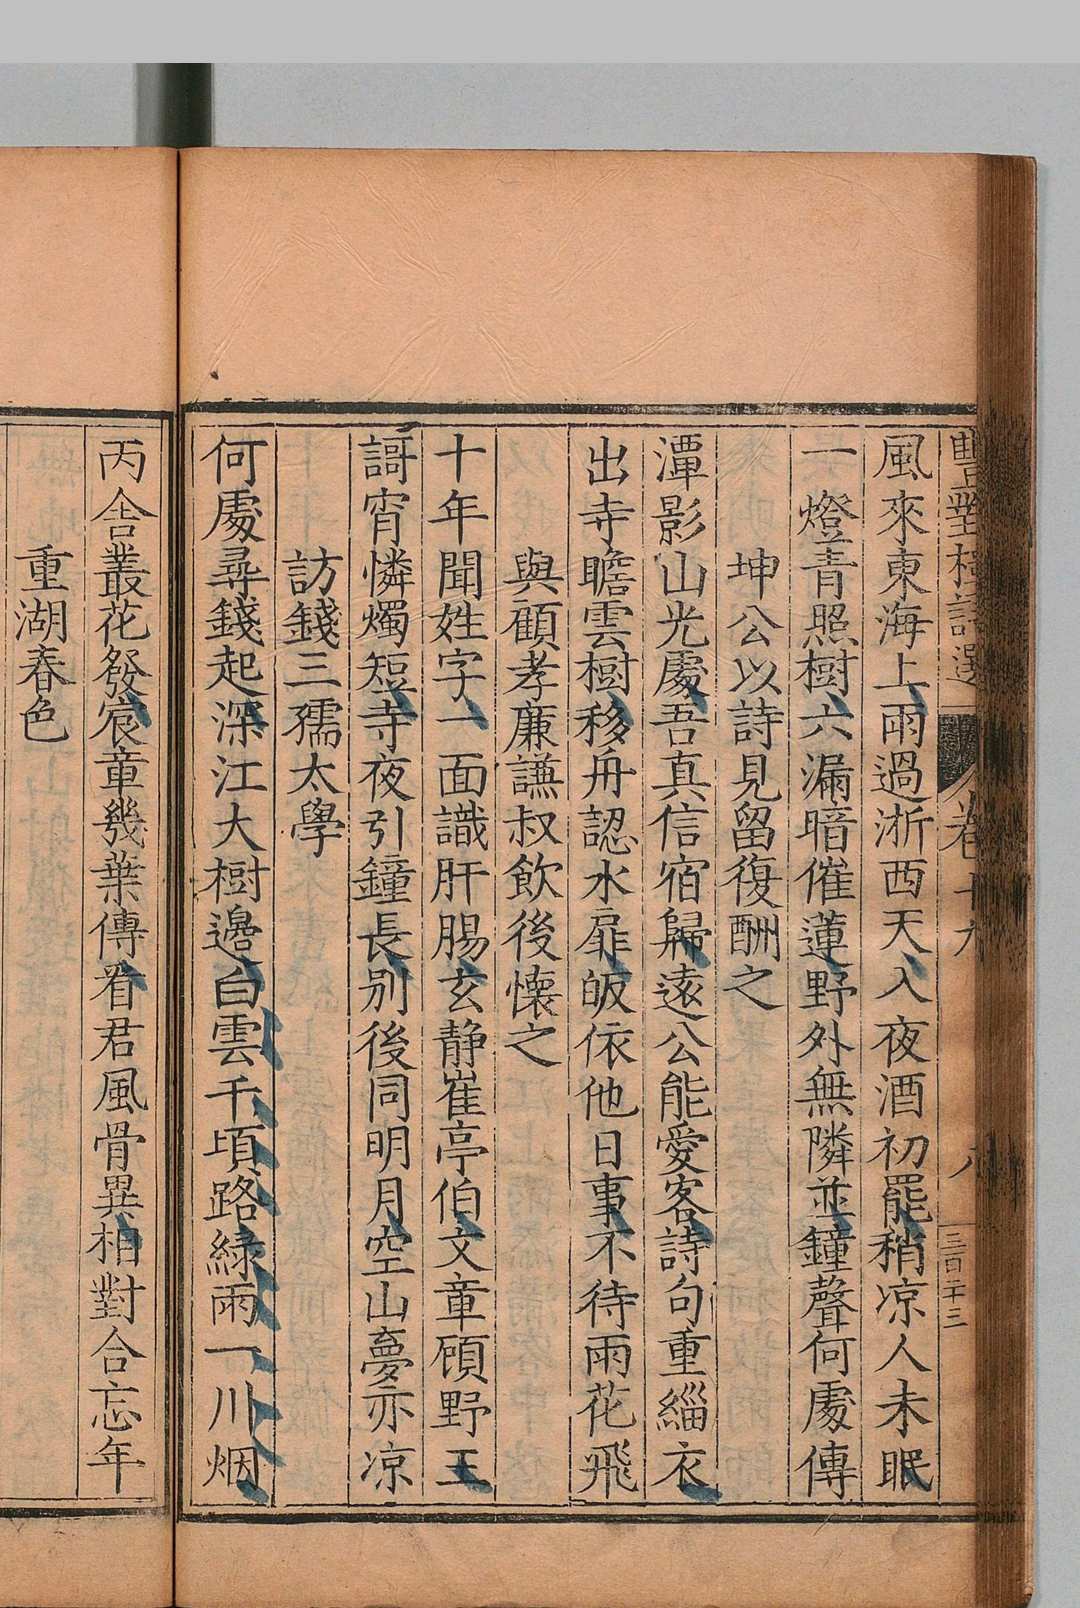 豐對樓詩選 卷十九 八 三百二十三
風來東海上雨過浙西天入夜酒初罷稍凉人未眠
一燈青照樹六漏暗催蓮野外無隣並鐘聲何處傳
坤公以詩見留復酬之
潭影山光處吾真信宿歸遠公能愛客詩句重緇衣
出寺瞻雲樹移舟認水扉皈依他日事不待雨花飛
與顧孝廉謙叔飲後懷之
十年聞姓字一面識肝腸玄静崔亭伯文章顧野王
謌宵憐燭短寺夜引鐘長别後同明月空山夢亦凉
訪錢三孺太學
何處尋錢起深江大樹邊白雲千頃路緑雨一川烟
丙舍叢花發宸章幾葉傳看君風骨異相對合忘年
重湖春色